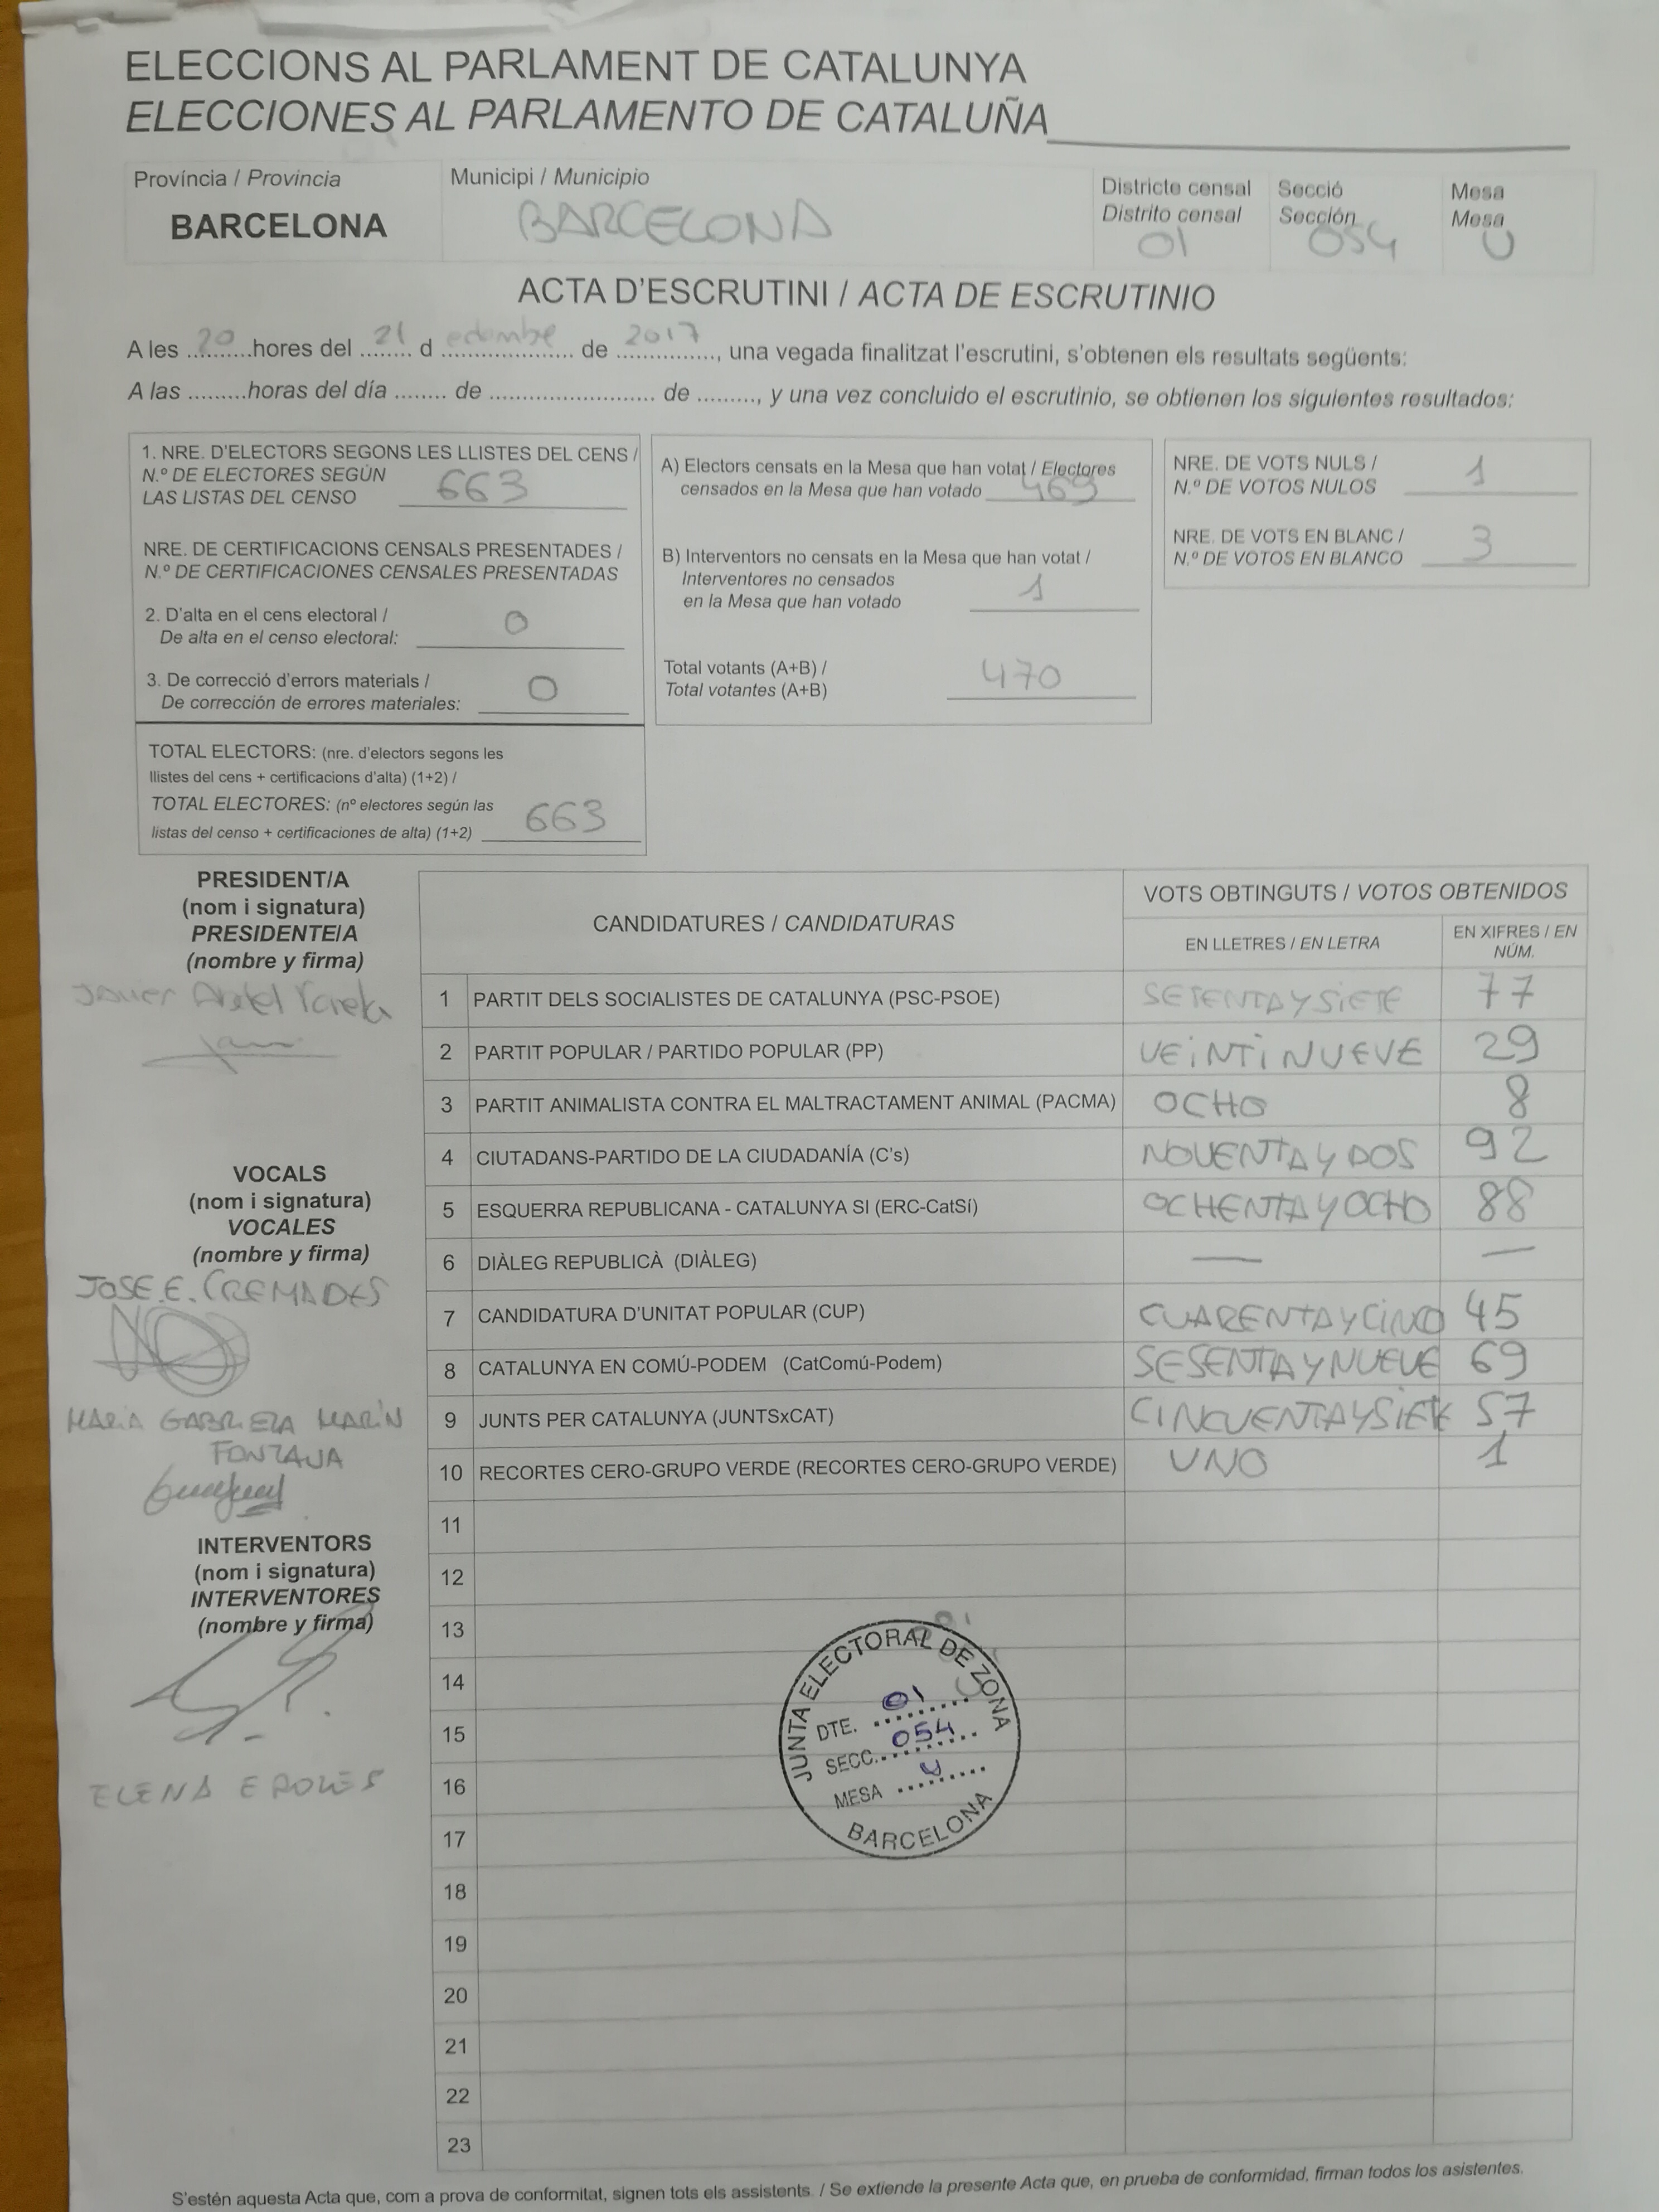 ELECCIONS AL PARLAMENT DE CATALUNYA
ELECCIONES AL PARLAMENTO DE CATALUÑA
Província / Provincia
BARCELONA
Municipi / Municipio
BARCELONA
Districte censal
Distrito censal
01
Secció
Sección
054
Mesa
Mesa
U
ACTA D'ESCRUTINI / ACTA DE ESCRUTINIO
A les 20 hores del 21 d de 2017, una vegada finalitzat l'escrutini, s'obtenen els resultats següents:
A las .........horas del día ........ de .......................... de ........., y una vez concluido el escrutinio, se obtienen los siguientes resultados:
1. NRE. D'ELECTORS SEGONS LES LLISTES DEL CENS /
N.º DE ELECTORES SEGÚN
LAS LISTAS DEL CENSO 663
NRE. DE CERTIFICACIONS CENSALS PRESENTADES /
N.º DE CERTIFICACIONES CENSALES PRESENTADAS
2. D'alta en el cens electoral /
De alta en el censo electoral: 0
3. De correcció d'errors materials /
De corrección de errores materiales: 0
TOTAL ELECTORS: (nre. d'electors segons les
llistes del cens + certificacions d'alta) (1+2) /
TOTAL ELECTORES: (nº electores según las
listas del censo + certificaciones de alta) (1+2) 663
A) Electors censats en la Mesa que han votat / Electores
censados en la Mesa que han votado 469
B) Interventors no censats en la Mesa que han votat /
Interventores no censados
en la Mesa que han votado 1
Total votants (A+B) /
Total votantes (A+B) 470
NRE. DE VOTS NULS /
N.º DE VOTOS NULOS 1
NRE. DE VOTS EN BLANC /
N.º DE VOTOS EN BLANCO 3
PRESIDENT/A
(nom i signatura)
PRESIDENTE/A
(nombre y firma)
Javier
VOCALS
(nom i signatura)
VOCALES
(nombre y firma)
JOSE.E. CREMADES
MARIA GABRIELA MARÍN
INTERVENTORS
(nom i signatura)
INTERVENTORES
(nombre y firma)
ELENA
CANDIDATURES / CANDIDATURAS
VOTS OBTINGUTS / VOTOS OBTENIDOS
EN LLETRES / EN LETRA
EN XIFRES / EN
NÚM.
1 PARTIT DELS SOCIALISTES DE CATALUNYA (PSC-PSOE) SETENTA Y SIETE 77
2 PARTIT POPULAR / PARTIDO POPULAR (PP) VEINTINUEVE 29
3 PARTIT ANIMALISTA CONTRA EL MALTRACTAMENT ANIMAL (PACMA) OCHO 8
4 CIUTADANS-PARTIDO DE LA CIUDADANÍA (C's) NOVENTA Y DOS 92
5 ESQUERRA REPUBLICANA - CATALUNYA SI (ERC-CatSí) OCHENTA Y OCHO 88
6 DIÀLEG REPUBLICÀ (DIÀLEG) — —
7 CANDIDATURA D'UNITAT POPULAR (CUP) CUARENTA Y CINCO 45
8 CATALUNYA EN COMÚ-PODEM (CatComú-Podem) SESENTA Y NUEVE 69
9 JUNTS PER CATALUNYA (JUNTSxCAT) CINCUENTA Y SIETE 57
10 RECORTES CERO-GRUPO VERDE (RECORTES CERO-GRUPO VERDE) UNO 1
11
12
13
14
15
16
17
18
19
20
21
22
23
JUNTA ELECTORAL DE ZONA
DTE. 01
SECC. 054
MESA U
BARCELONA
S'estén aquesta Acta que, com a prova de conformitat, signen tots els assistents. / Se extiende la presente Acta que, en prueba de conformidad, firman todos los asistentes.